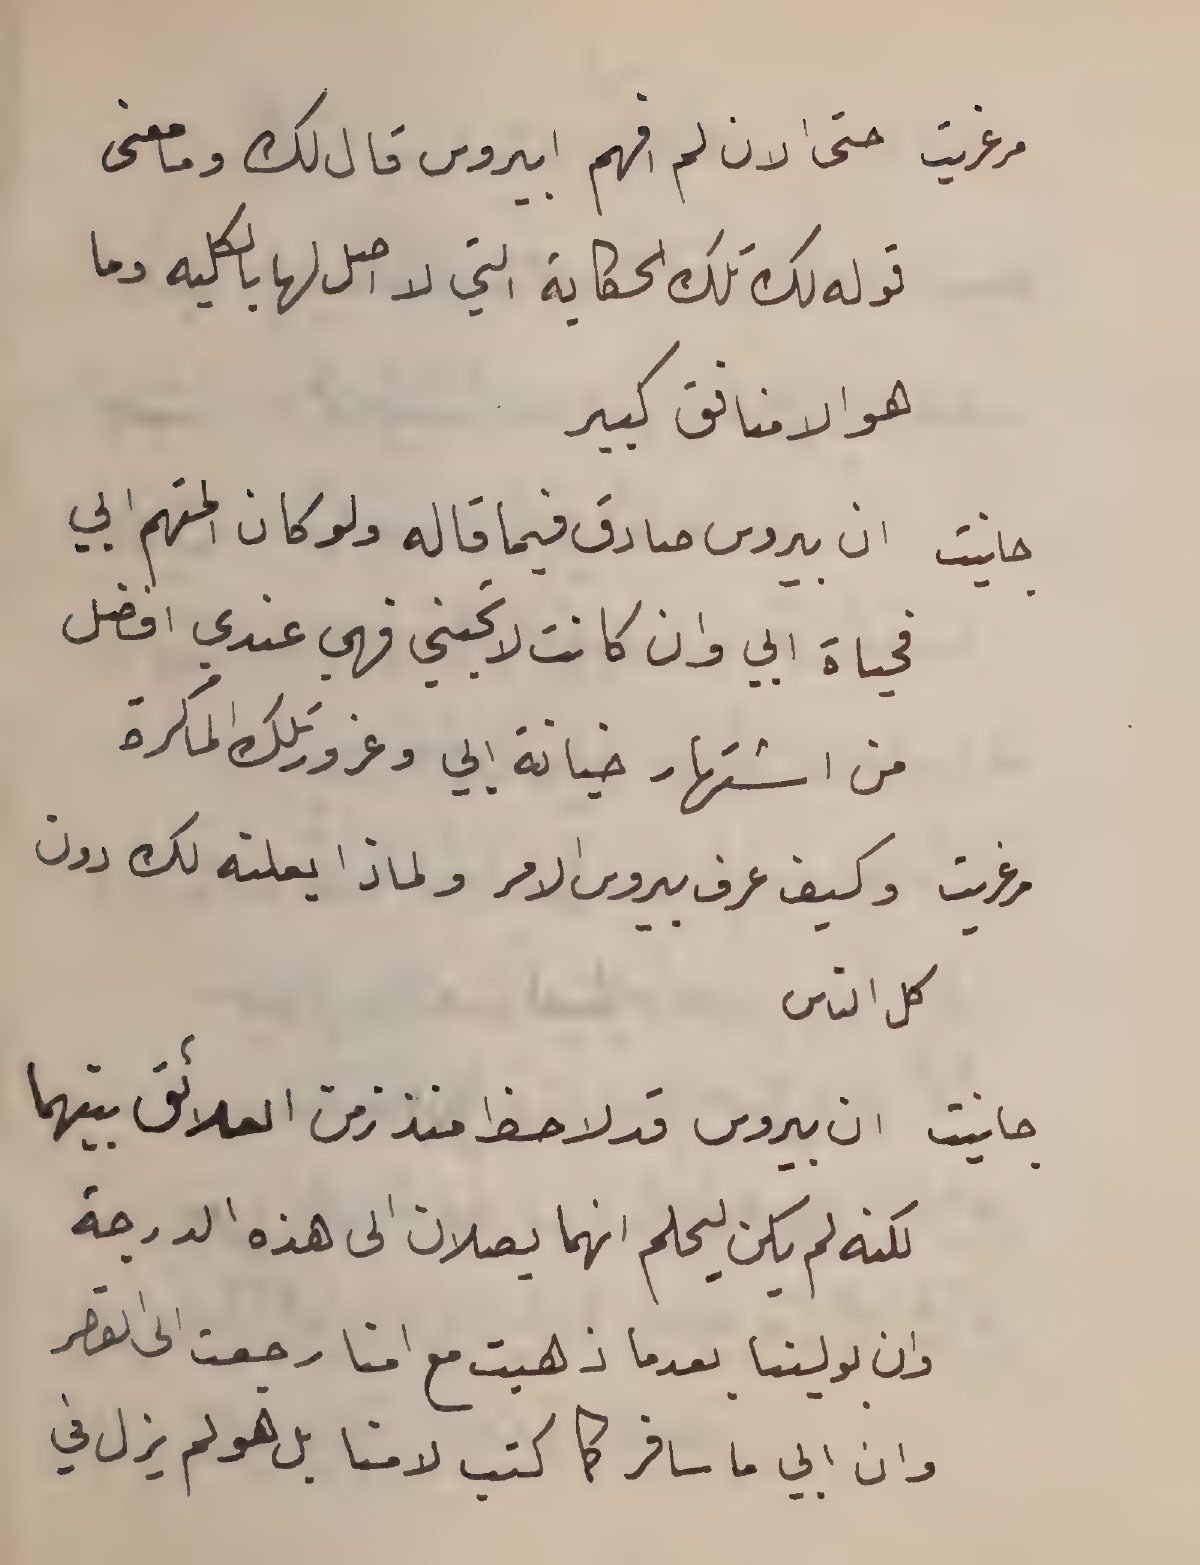 مرغريت حتى الان لم افهم ابيروس قال لك وما معنى
قوله لك تلك الحكاية التي لا اصل لها بالكليه وما
هو الا منافق كبير
جانيت ان بيروس صادق فيما قاله ولو كان المتهم ابي
فحياة ابي وان كانت لا تحبني فهي عندي افضل
من اشتهار خيانة ابي وغرور تلك الماكرة
مرغريت وكيف عرف بيروس الامر ولماذا يعلنه لك دون
كل الناس
جانيت ان بيروس قد لاحظ منذ زمن العلائق بينهما
لكنه لم يكن ليحلم انهما يصلان الى هذه الدرجة
وان بولينا بعدما ذهبت مع امنا رجعت الى القصر
وان ابي ما سافر كما كتب لامنا بل هو لم يزل في